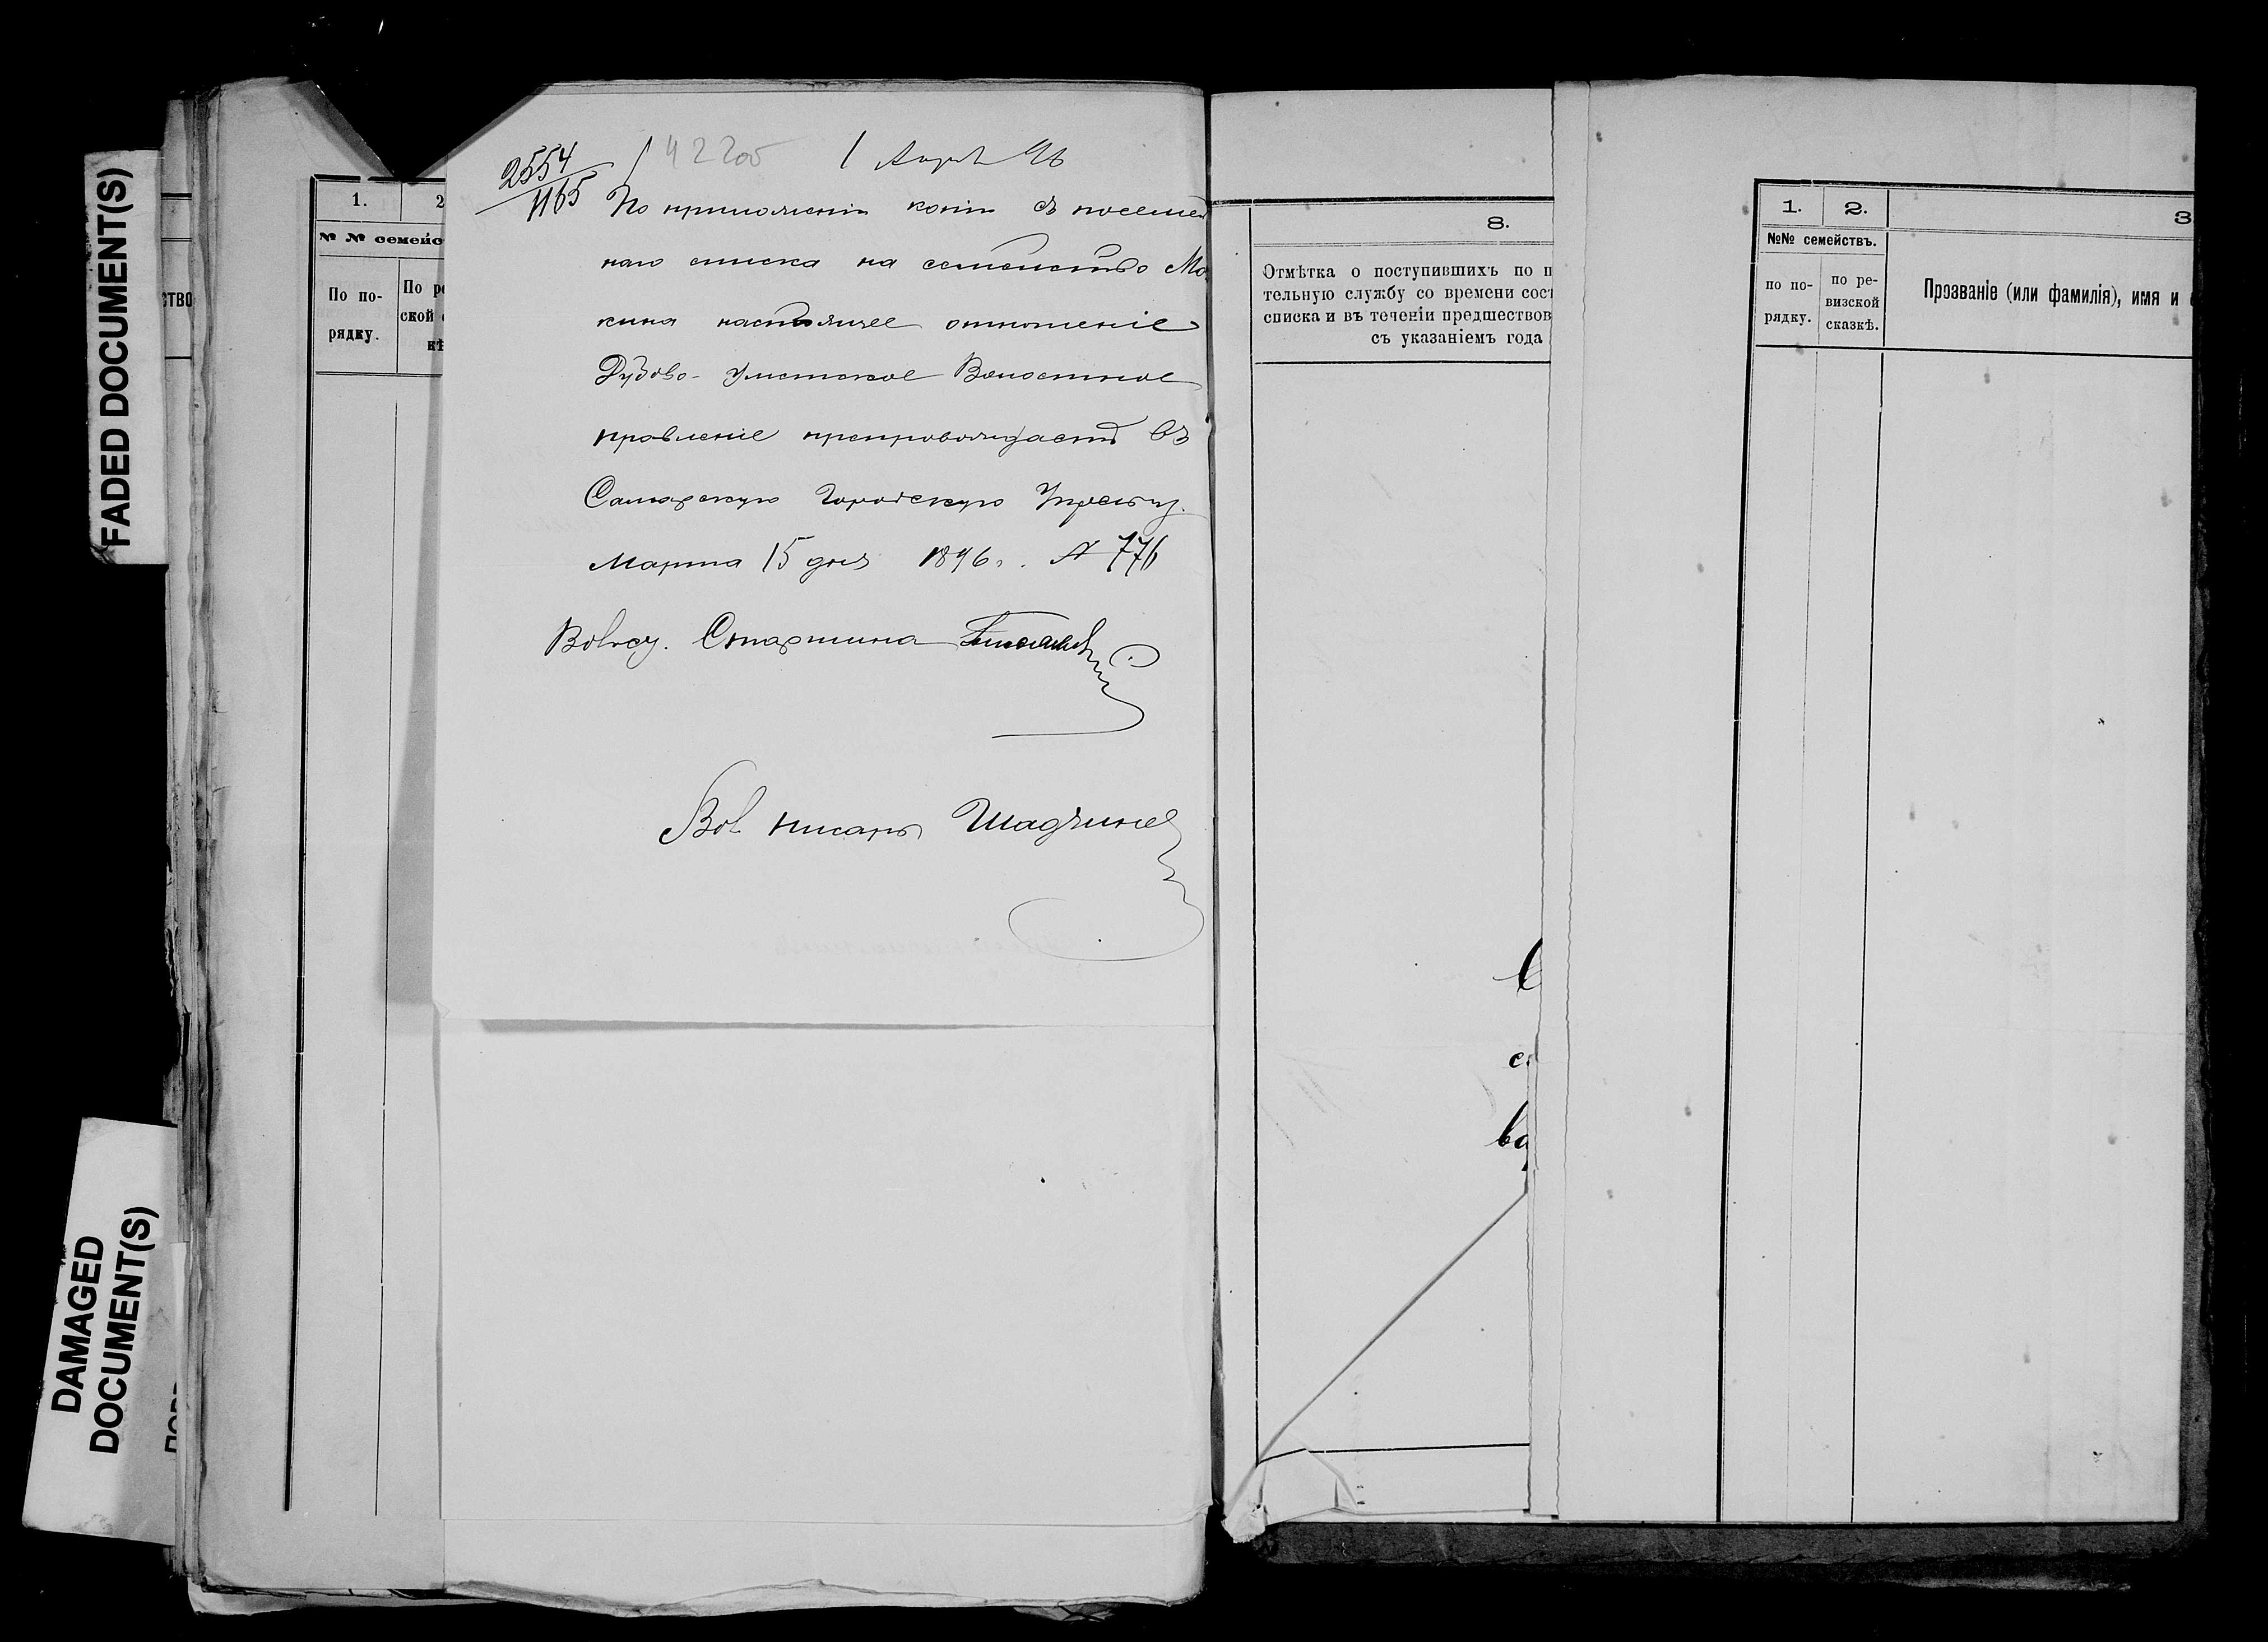 FADED DOCUMENT(S)
DAMAGED
DOCUMENT(S)
СТВО
1.
2
№ № семейс
По по-
рядку.
По ре
ской с
кѣ
2554
1165
42200
1 Апрѣл 96
По приложеніи копіи съ посемей
наго списка на семейство Мо
кина настоящее отношеніе
Дубово-Уметское Волостное
правленіе препровождаетъ въ
Самарскую Городскую Управу.
Марта 15 дня 1896 г. № 776
Волост. Старшина
Вол писарь
8.
Отмѣтка о поступившихъ по п
тельную службу со времени сост
списка и въ теченіи предшествов
съ указаніемъ года
С
ва
1.
2.
3
№№ семействъ.
по по-
рядку.
по ре-
визской
сказкѣ.
Прозваніе (или фамилія), имя и о